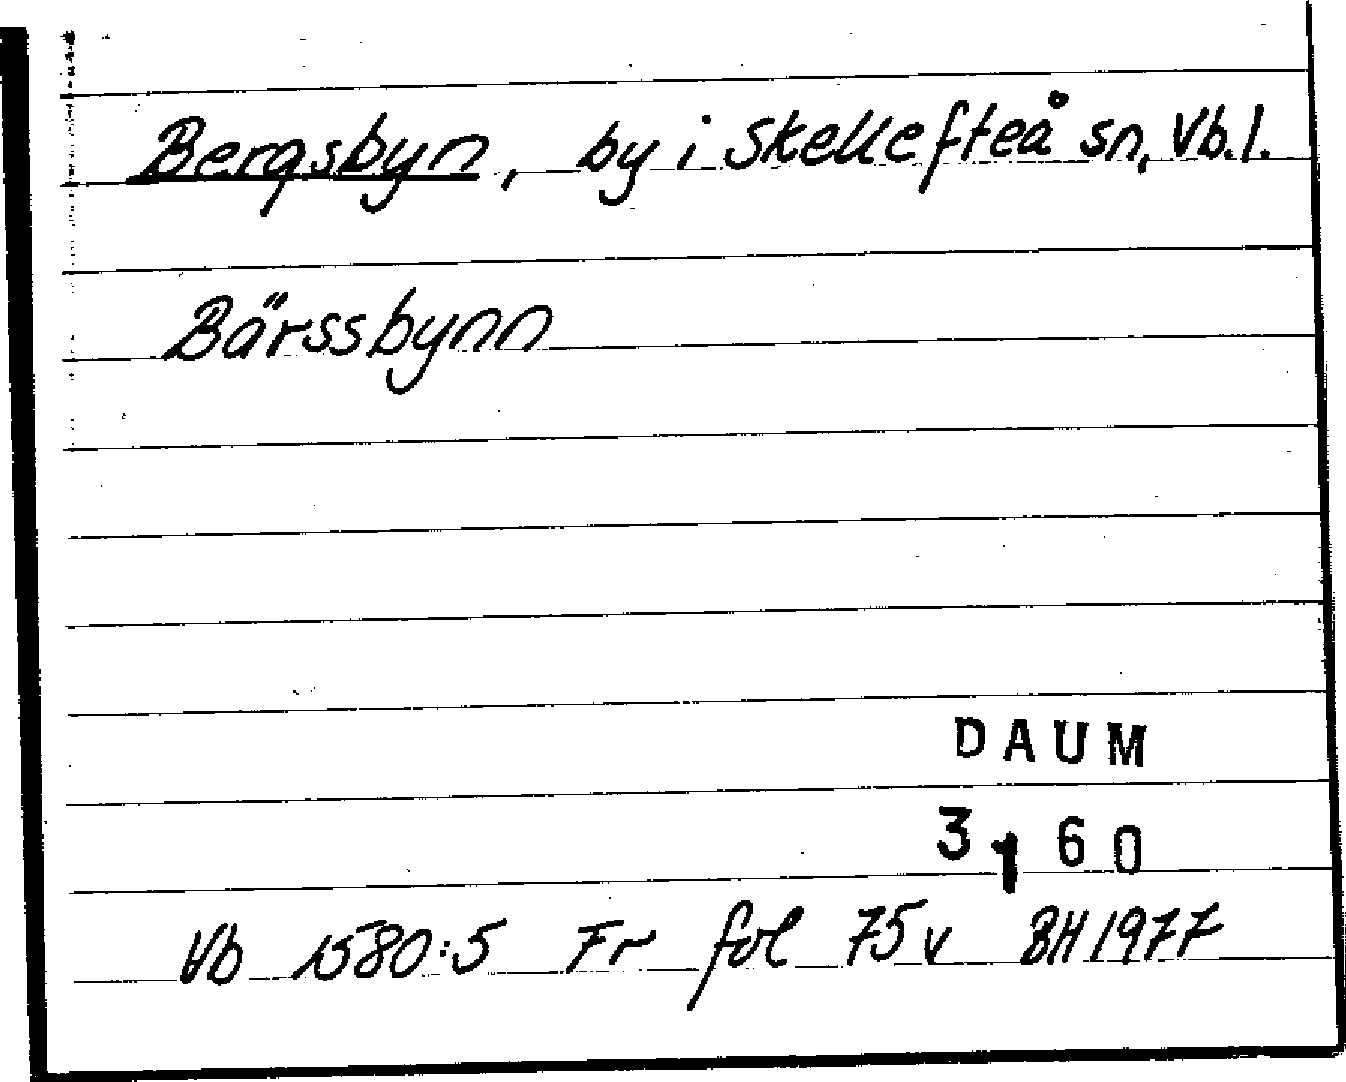 Bergsbyn, by i Skellefteå sn, Vb.l.
Bärssbynn
DAUM
3160
Vb 1580:5 Fr fol 75 v BH 1977